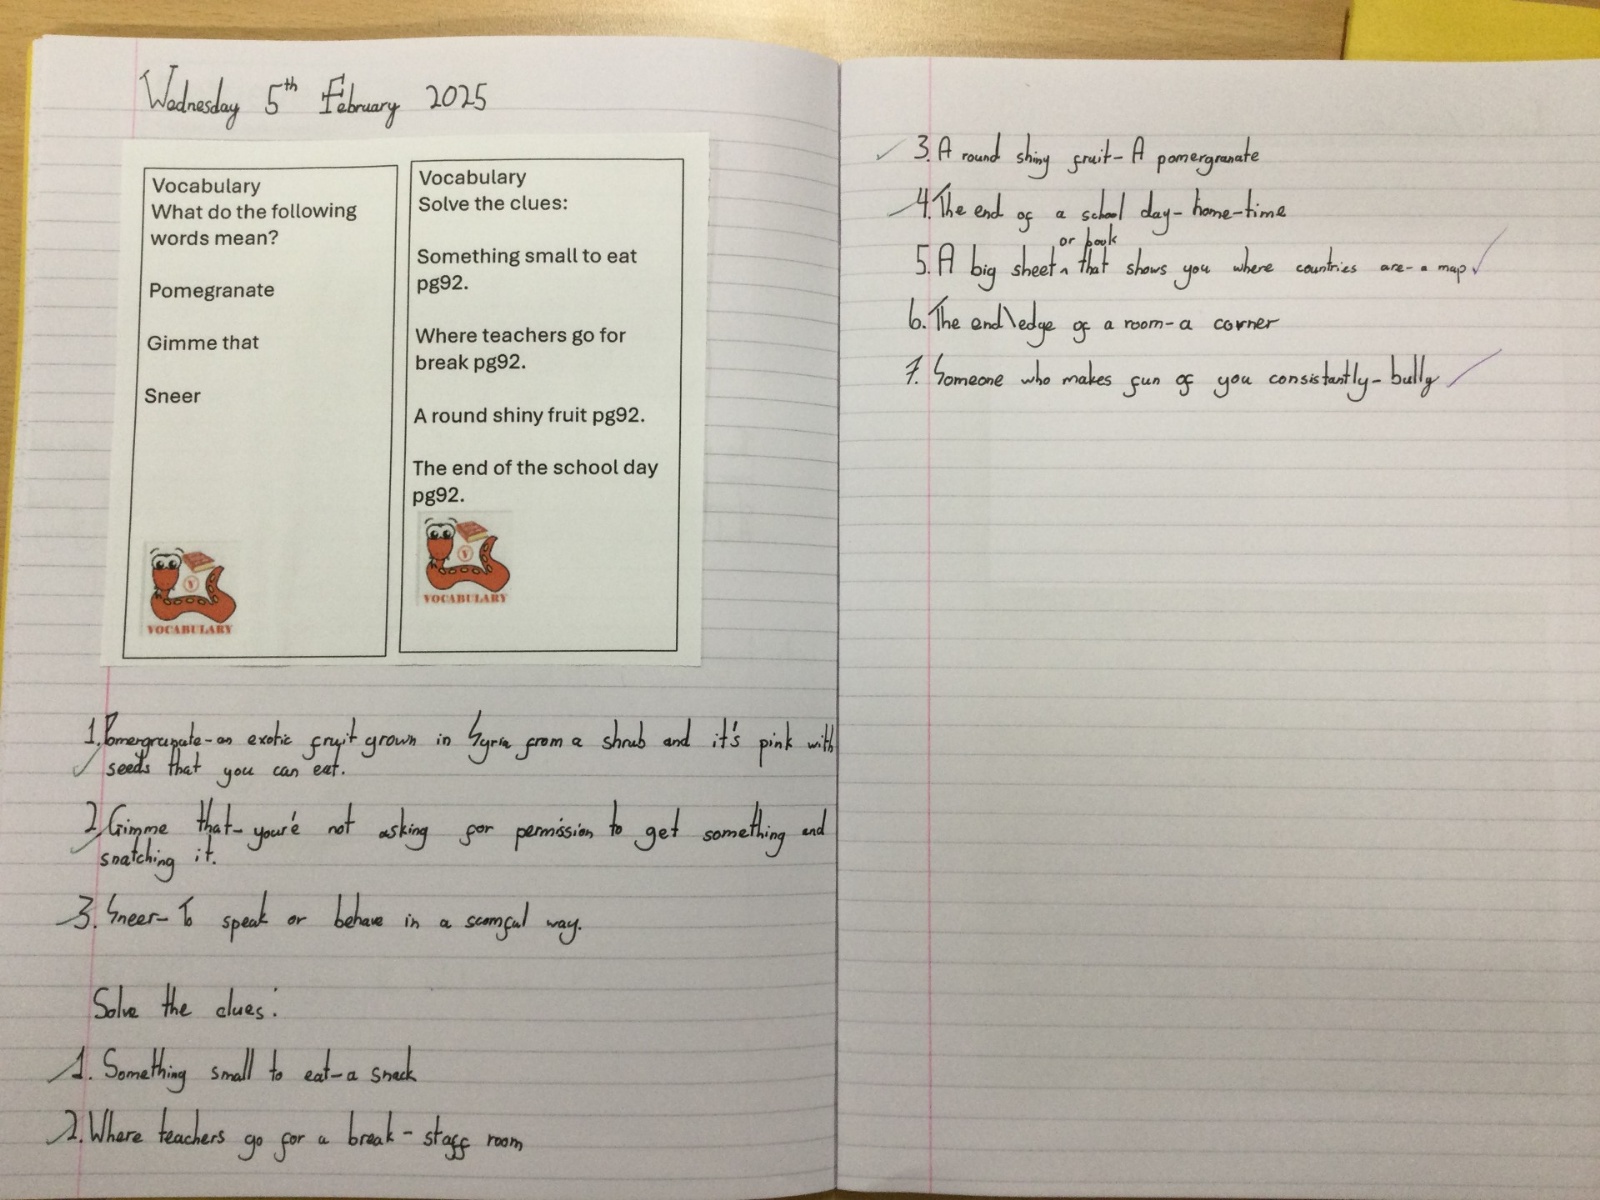 Wednesday 5th February 2025
Vocabulary
What do the following
words mean?
Pomegranate
Gimme that
Sneer
VOCABULARY
Vocabulary
Solve the clues:
Something small to eat
pg92.
Where teachers go for
break pg92.
A round shiny fruit pg92.
The end of the school day
pg92.
VOCABULARY
1. Pomergranate-an exotic fruit grown in Syria from a shrub and it's pink with
seeds that you can eat.
2. Gimme that- your'e not asking for permission to get something and
snatching it.
3. Sneer- To speak or behave in a scornful way.
Solve the clues:
1. Something small to eat-a snack
2. Where teachers go for a break - staff room
3. A round shiny fruit- A pomergranate
4. The end of a school day- home-time
or book
5. A big sheet^ that shows you where countries are- a map
6. The end\edge of a room- a corner
7. Someone who makes fun of you consistantly- bully